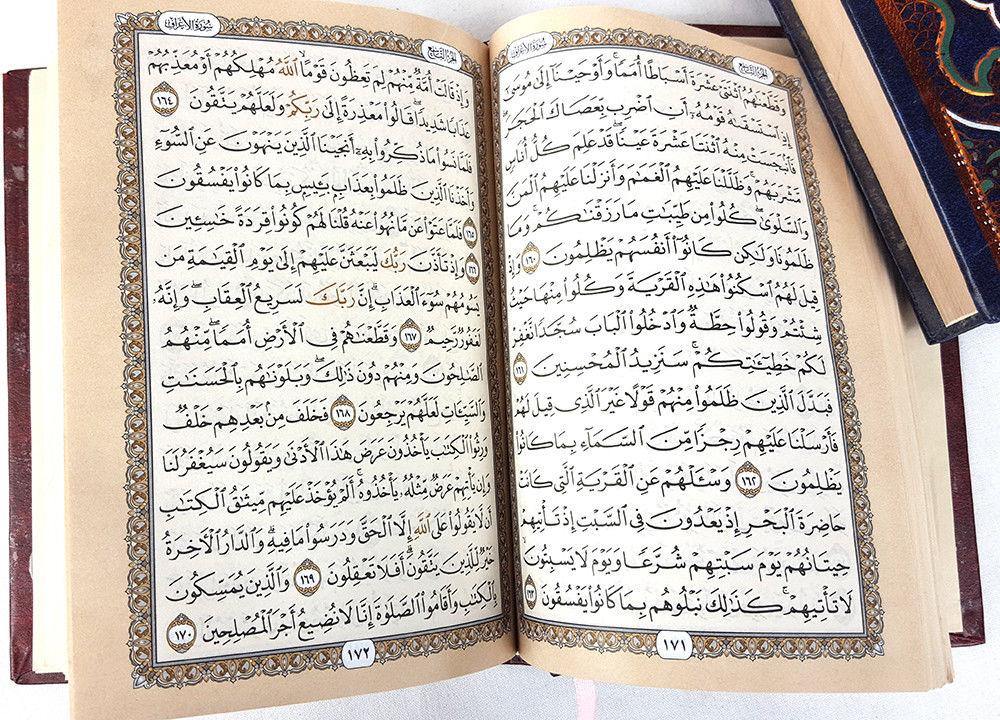 الجزء التاسع
سورة الأعراف
وَقَطَّعْنَٰهُمُ ٱثْنَتَىْ عَشْرَةَ أَسْبَاطًا أُمَمًا ۚ وَأَوْحَيْنَآ إِلَىٰ مُوسَىٰٓ
إِذِ ٱسْتَسْقَىٰهُ قَوْمُهُۥٓ أَنِ ٱضْرِب بِّعَصَاكَ ٱلْحَجَرَ ۖ
فَٱنۢبَجَسَتْ مِنْهُ ٱثْنَتَا عَشْرَةَ عَيْنًا ۖ قَدْ عَلِمَ كُلُّ أُنَاسٍ
مَّشْرَبَهُمْ ۚ وَظَلَّلْنَا عَلَيْهِمُ ٱلْغَمَٰمَ وَأَنزَلْنَا عَلَيْهِمُ ٱلْمَنَّ
وَٱلسَّلْوَىٰ ۖ كُلُوا۟ مِن طَيِّبَٰتِ مَا رَزَقْنَٰكُمْ ۚ وَمَا
ظَلَمُونَا وَلَٰكِن كَانُوٓا۟ أَنفُسَهُمْ يَظْلِمُونَ ١٦٠ وَإِذْ
قِيلَ لَهُمُ ٱسْكُنُوا۟ هَٰذِهِ ٱلْقَرْيَةَ وَكُلُوا۟ مِنْهَا حَيْثُ
شِئْتُمْ وَقُولُوا۟ حِطَّةٌ وَٱدْخُلُوا۟ ٱلْبَابَ سُجَّدًا نَّغْفِرْ
لَكُمْ خَطِيٓـَٰٔتِكُمْ ۚ سَنَزِيدُ ٱلْمُحْسِنِينَ ١٦١
فَبَدَّلَ ٱلَّذِينَ ظَلَمُوا۟ مِنْهُمْ قَوْلًا غَيْرَ ٱلَّذِى قِيلَ لَهُمْ
فَأَرْسَلْنَا عَلَيْهِمْ رِجْزًا مِّنَ ٱلسَّمَآءِ بِمَا كَانُوا۟
يَظْلِمُونَ ١٦٢ وَسْـَٔلْهُمْ عَنِ ٱلْقَرْيَةِ ٱلَّتِى كَانَتْ
حَاضِرَةَ ٱلْبَحْرِ إِذْ يَعْدُونَ فِى ٱلسَّبْتِ إِذْ تَأْتِيهِمْ
حِيتَانُهُمْ يَوْمَ سَبْتِهِمْ شُرَّعًا وَيَوْمَ لَا يَسْبِتُونَ ۙ
لَا تَأْتِيهِمْ ۚ كَذَٰلِكَ نَبْلُوهُم بِمَا كَانُوا۟ يَفْسُقُونَ ١٦٣
١٧١
الجزء التاسع
سورة الأعراف
وَإِذْ قَالَتْ أُمَّةٌ مِّنْهُمْ لِمَ تَعِظُونَ قَوْمًا ۙ ٱللَّهُ مُهْلِكُهُمْ أَوْ مُعَذِّبُهُمْ
عَذَابًا شَدِيدًا ۖ قَالُوا۟ مَعْذِرَةً إِلَىٰ رَبِّكُمْ وَلَعَلَّهُمْ يَتَّقُونَ ١٦٤
فَلَمَّا نَسُوا۟ مَا ذُكِّرُوا۟ بِهِۦٓ أَنجَيْنَا ٱلَّذِينَ يَنْهَوْنَ عَنِ ٱلسُّوٓءِ
وَأَخَذْنَا ٱلَّذِينَ ظَلَمُوا۟ بِعَذَابٍۭ بَـِٔيسٍۭ بِمَا كَانُوا۟ يَفْسُقُونَ
١٦٥ فَلَمَّا عَتَوْا۟ عَن مَّا نُهُوا۟ عَنْهُ قُلْنَا لَهُمْ كُونُوا۟ قِرَدَةً خَٰسِـِٔينَ
١٦٦ وَإِذْ تَأَذَّنَ رَبُّكَ لَيَبْعَثَنَّ عَلَيْهِمْ إِلَىٰ يَوْمِ ٱلْقِيَٰمَةِ مَن
يَسُومُهُمْ سُوٓءَ ٱلْعَذَابِ ۗ إِنَّ رَبَّكَ لَسَرِيعُ ٱلْعِقَابِ ۖ وَإِنَّهُۥ
لَغَفُورٌ رَّحِيمٌ ١٦٧ وَقَطَّعْنَٰهُمْ فِى ٱلْأَرْضِ أُمَمًا ۖ مِّنْهُمُ
ٱلصَّٰلِحُونَ وَمِنْهُمْ دُونَ ذَٰلِكَ ۖ وَبَلَوْنَٰهُم بِٱلْحَسَنَٰتِ
وَٱلسَّيِّـَٔاتِ لَعَلَّهُمْ يَرْجِعُونَ ١٦٨ فَخَلَفَ مِنۢ بَعْدِهِمْ خَلْفٌ
وَرِثُوا۟ ٱلْكِتَٰبَ يَأْخُذُونَ عَرَضَ هَٰذَا ٱلْأَدْنَىٰ وَيَقُولُونَ سَيُغْفَرُ لَنَا
وَإِن يَأْتِهِمْ عَرَضٌ مِّثْلُهُۥ يَأْخُذُوهُ ۚ أَلَمْ يُؤْخَذْ عَلَيْهِم مِّيثَٰقُ ٱلْكِتَٰبِ
أَن لَّا يَقُولُوا۟ عَلَى ٱللَّهِ إِلَّا ٱلْحَقَّ وَدَرَسُوا۟ مَا فِيهِ ۗ وَٱلدَّارُ ٱلْءَاخِرَةُ
خَيْرٌ لِّلَّذِينَ يَتَّقُونَ ۗ أَفَلَا تَعْقِلُونَ ١٦٩ وَٱلَّذِينَ يُمَسِّكُونَ
بِٱلْكِتَٰبِ وَأَقَامُوا۟ ٱلصَّلَوٰةَ إِنَّا لَا نُضِيعُ أَجْرَ ٱلْمُصْلِحِينَ ١٧٠
١٧٢